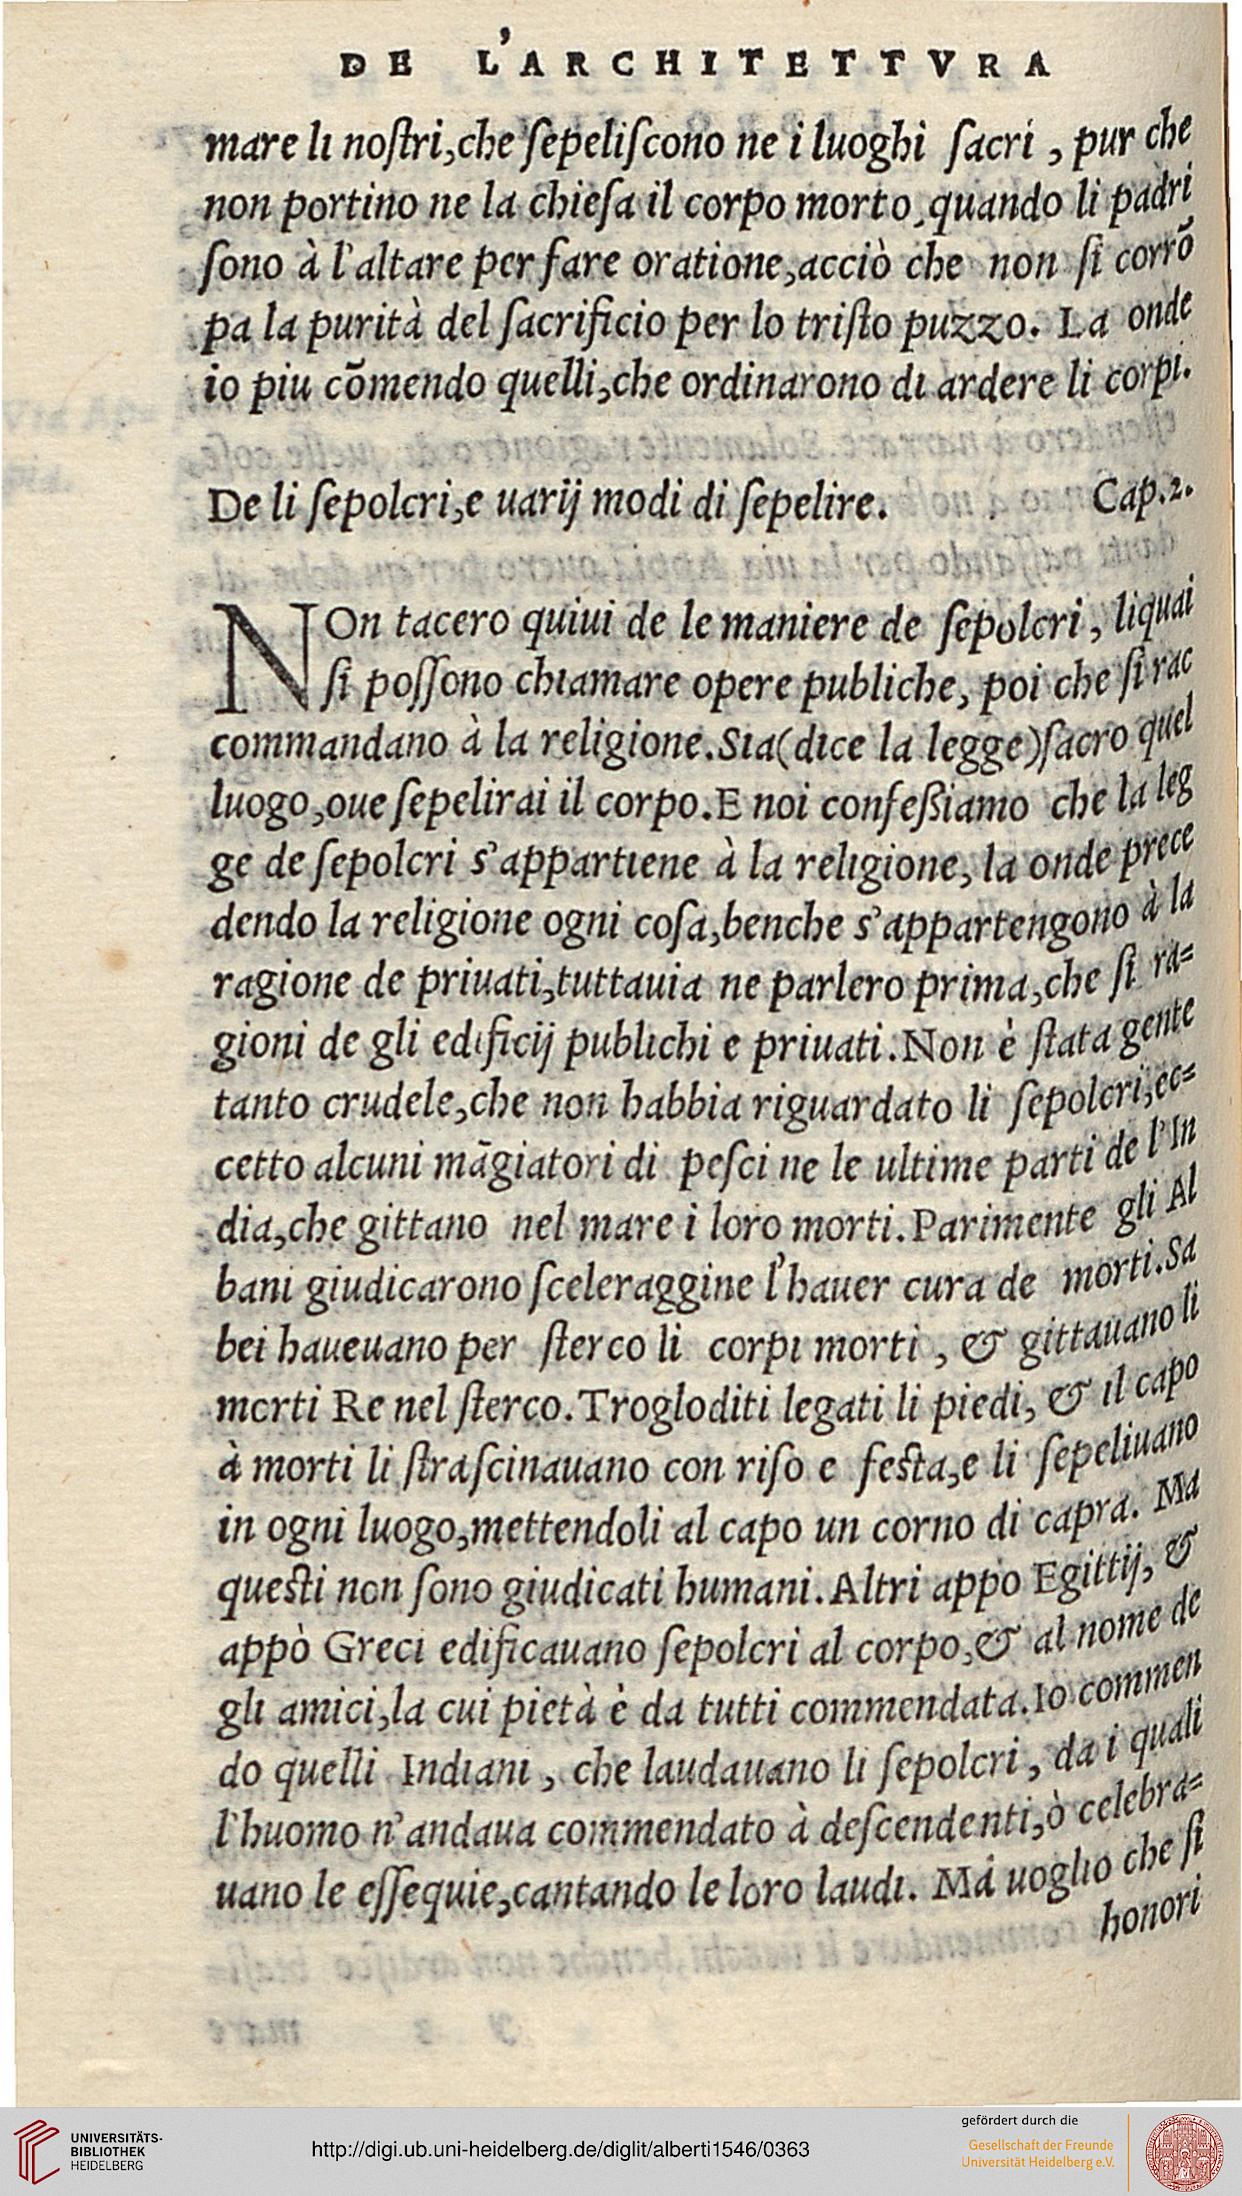 DE L'ARCHITETTVRA
mare li noſtri,che ſepeliſcono ne i luoghi ſacri , pur che
non portino ne la chieſa il corpo morto,quando li padri
ſono à l'altare per fare oratione,acciò che non ſi corrō
pa la purità del ſacrificio per lo triſto puzzo. La onde
io piu cōmendo quelli,che ordinarono di ardere li corpi.
De li ſepolcri,e uarij modi di ſepelire. Cap.2.
NOn tacero quiui de le maniere de ſepolcri , liquai
ſi poſſono chiamare opere publiche, poi che ſi rac
commandano à la religione.Sia(dice la legge)ſacro quel
luogo,oue ſepelirai il corpo.E noi confeßiamo che la leg
ge de ſepolcri s'appartiene à la religione, la onde prece
dendo la religione ogni coſa,benche s'appartengono à la
ragione de priuati,tuttauia ne parlero prima,che ſi ra=
gioni de gli edificij publichi e priuati.Non è ſtata gente
tanto crudele,che non habbia riguardato li ſepolcri,ec=
cetto alcuni māgiatori di peſci ne le ultime parti de l'In
dia,che gittano nel mare i loro morti.Parimente gli Al
bani giudicarono ſceleraggine l'hauer cura de morti.Sa
bei haueuano per ſterco li corpi morti , & gittauano li
morti Re nel ſterco.Trogloditi legati li piedi, & il capo
à morti li ſtraſcinauano con riſo e feſta,e li ſepeliuano
in ogni luogo,mettendoli al capo un corno di capra. Ma
queſti non ſono giudicati humani.Altri appo Egittij, &
appò Greci edificauano ſepolcri al corpo,& al nome de
gli amici,la cui pietà è da tutti commendata.Io commen
do quelli Indiani , che laudauano li ſepolcri , da i quali
l'huomo n'andaua commendato à deſcendenti,ò celebra=
uano le eſſequie,cantando le loro laudi. Ma uoglio che ſi
honori
UNIVERSITÄTS-
BIBLIOTHEK
HEIDELBERG
http://digi.ub.uni-heidelberg.de/diglit/alberti1546/0363
gefördert durch die
Gesellschaft der Freunde
Universität Heidelberg e.V.